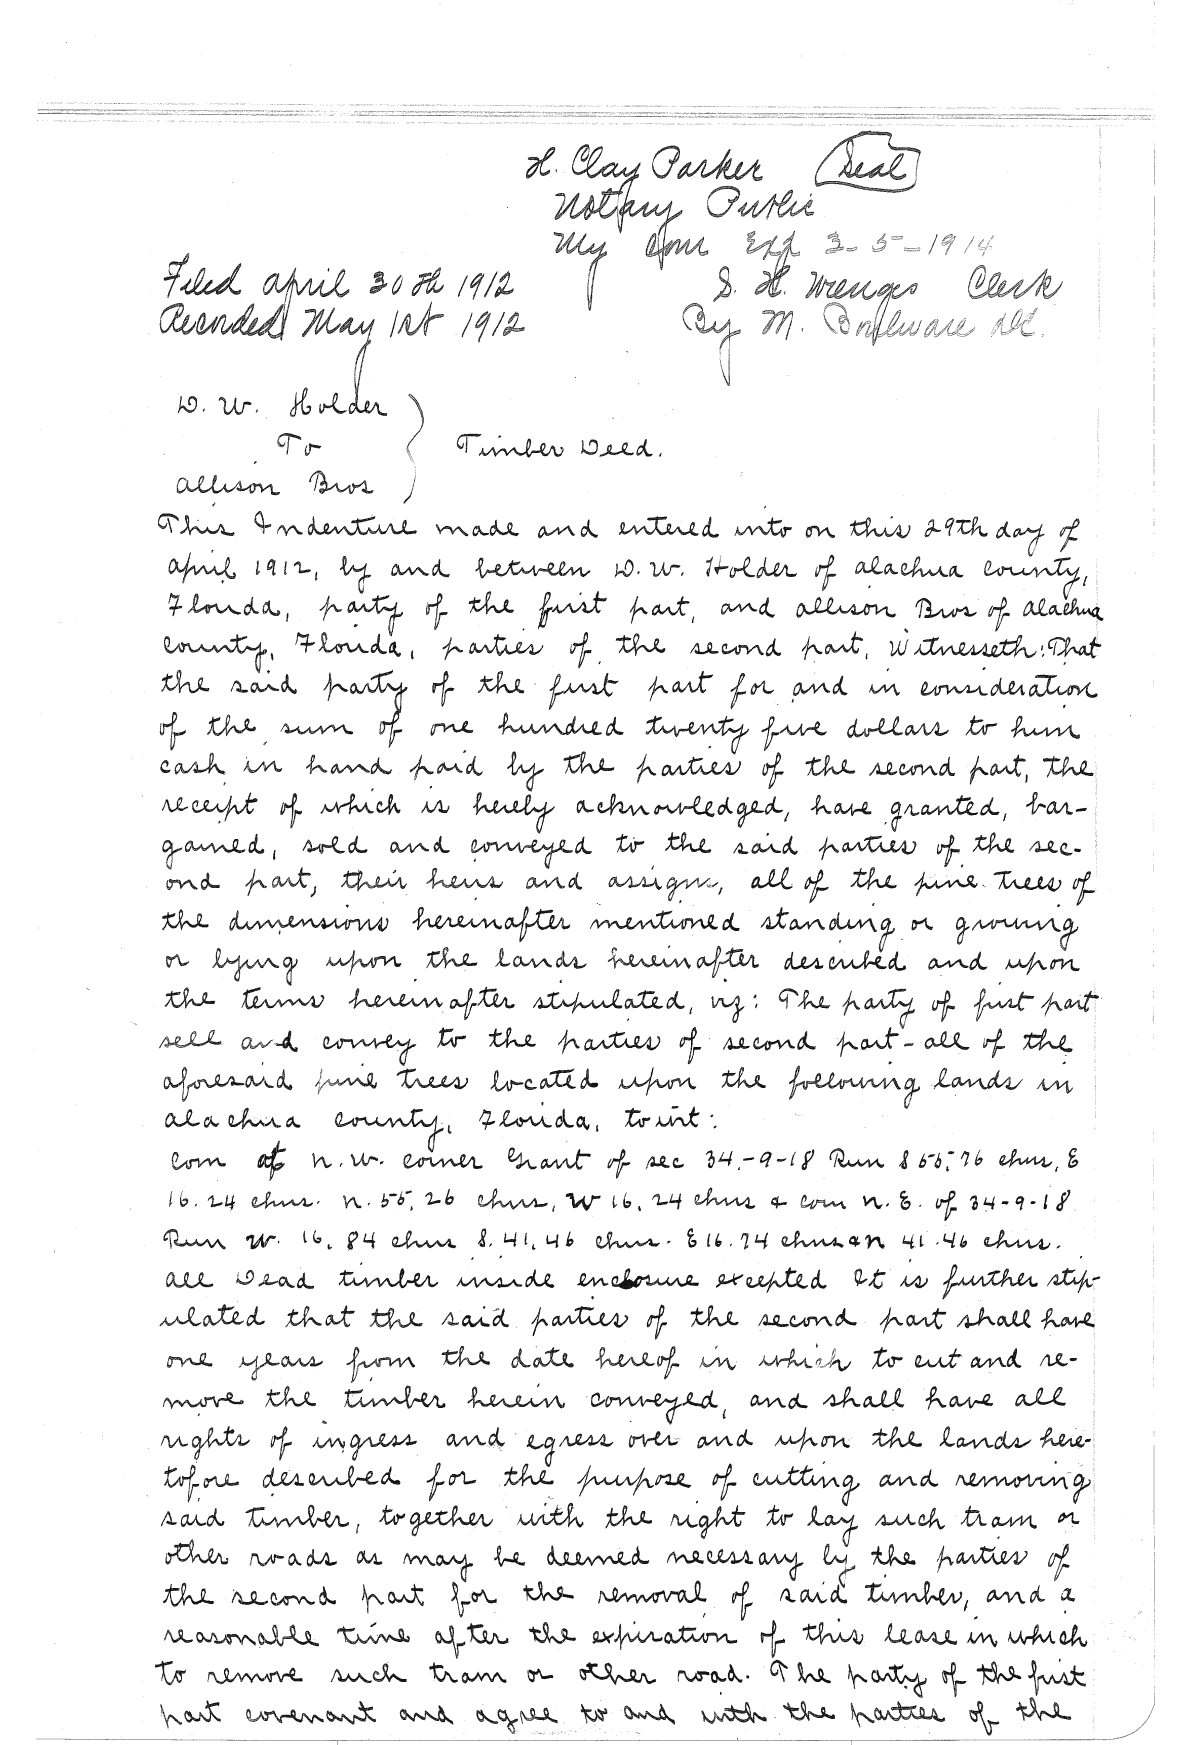 H. Clay Parker (Seal)
Notary Public
My Com Exp 3-5-1914
Filed April 30th 1912 S. H. Wienges Clerk
Recorded May 1st 1912 By M. Boulware D.C.
D. W. Holder
To } Timber Deed.
Allison Bros
This Indenture made and entered into on this 29th day of
April 1912, by and between D. W. Holder of Alachua County,
Florida, party of the first part, and Allison Bros of Alachua
County, Florida, parties of the second part, Witnesseth: That
the said party of the first part for and in consideration
of the sum of one hundred twenty five dollars to him
cash in hand paid by the parties of the second part, the
receipt of which is hereby acknowledged, have granted, bar-
gained, sold and conveyed to the said parties of the sec-
ond part, their heirs and assigns, all of the pine trees of
the dimensions hereinafter mentioned standing or growing
or lying upon the lands hereinafter described and upon
the terms hereinafter stipulated, viz: The party of first part
sell and convey to the parties of second part - all of the
aforesaid pine trees located upon the following lands in
Alachua County, Florida, towit:
Com at N.W. corner Grant of sec 34-9-18 Run S 55,76 chns, E
16.24 chns. N. 55,26 chns, W 16,24 chns & com N. E. of 34-9-18
Run W. 16,84 chns S. 41,46 chns. E 16.74 chns & N 41.46 chns.
All Dead timber inside enclosure excepted It is further stip-
ulated that the said parties of the second part shall have
one years from the date hereof in which to cut and re-
move the timber herein conveyed, and shall have all
rights of ingress and egress over and upon the lands here-
tofore described for the purpose of cutting and removing
said timber, together with the right to lay such tram or
other roads as may be deemed necessary by the parties of
the second part for the removal of said timber, and a
reasonable time after the expiration of this lease in which
to remove such tram or other road. The party of the first
part covenant and agree to and with the parties of the